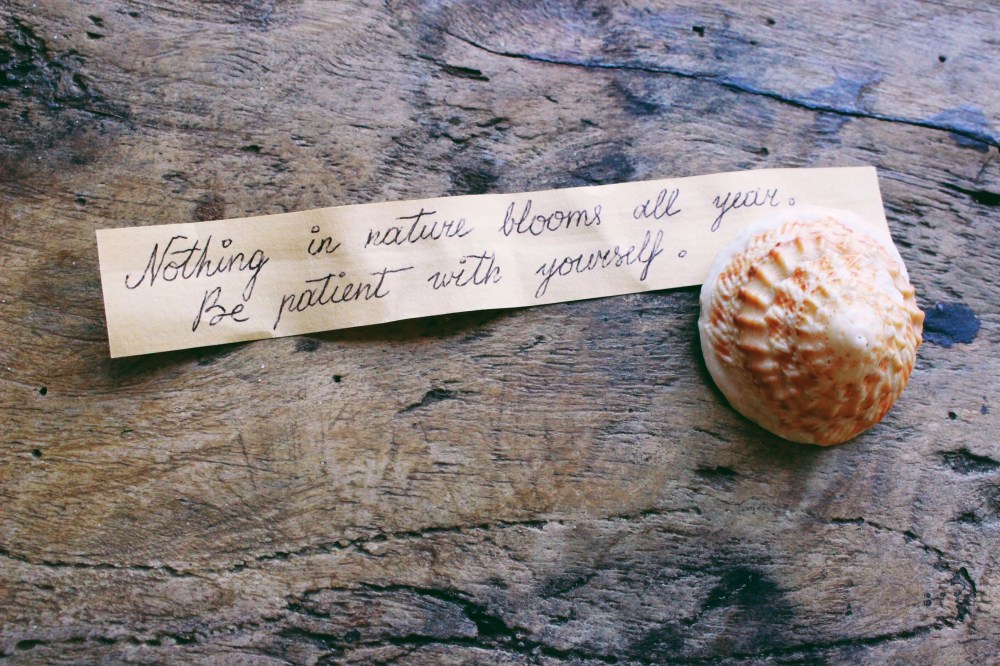 Nothing in nature blooms all year.
Be patient with yourself.